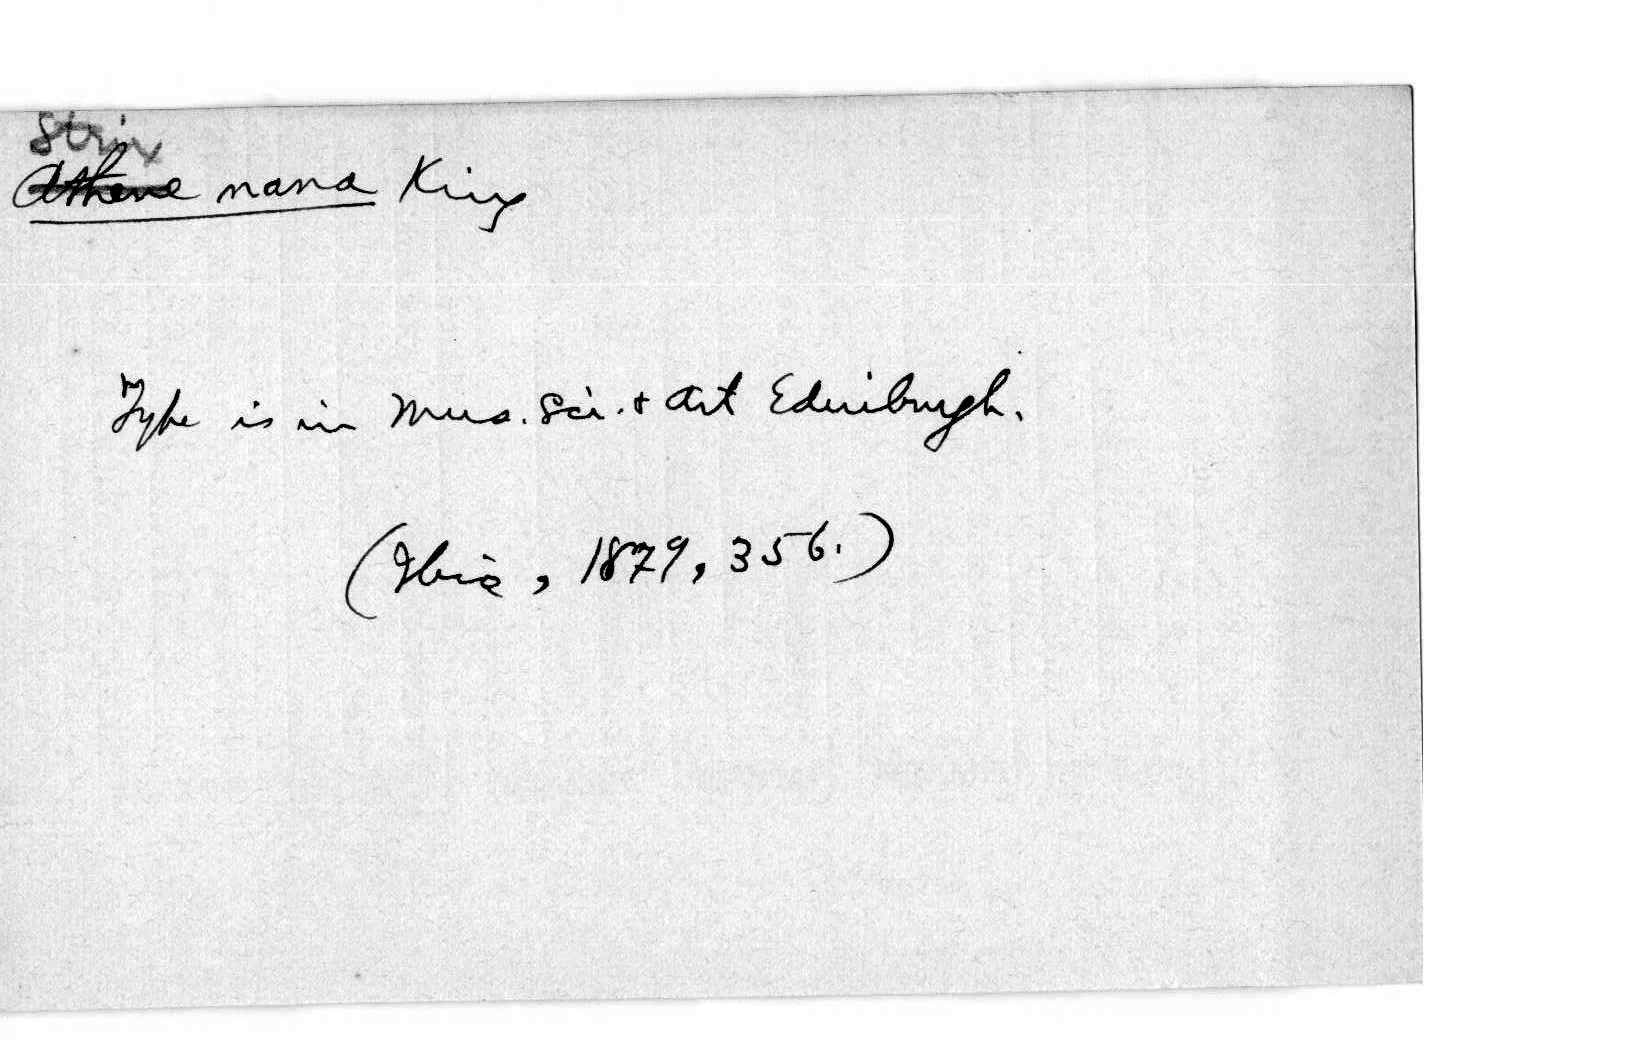 Strix
Athene nana King
Type is in Mus. Sci. & Art Edinburgh.
(Ibis, 1879, 356.)